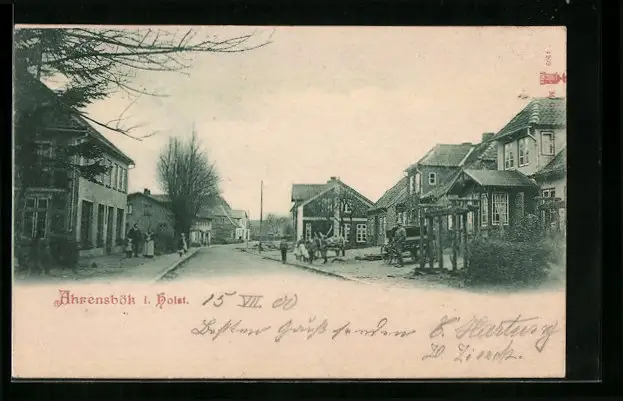 Ahrensbök i. Holst. 15 VII. 00
Besten Gruß senden C. Hartwig